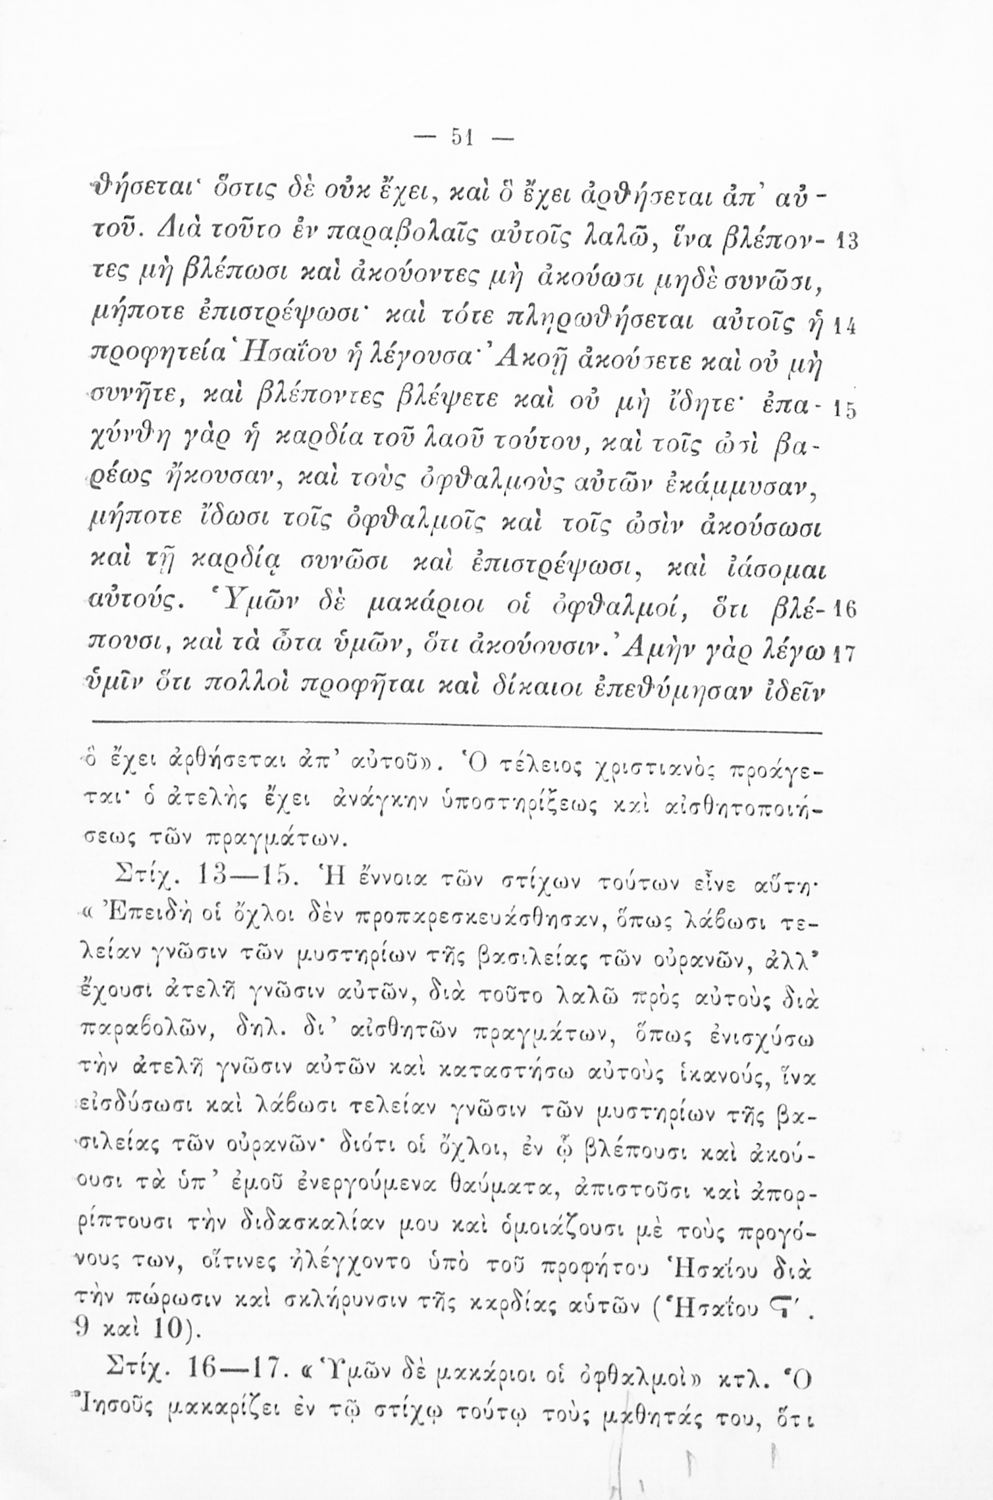 — 51 —
θήσεται· ὅστις δὲ οὐκ ἔχει, καὶ ὃ ἔχει ἀρθήσεται ἀπ’ αὐ-
τοῦ. Διὰ τοῦτο ἐν παραβολαῖς αὐτοῖς λαλῶ, ἵνα βλέπον- 13
τες μὴ βλέπωσι καὶ ἀκούοντες μὴ ἀκούωσι μηδὲ συνῶσι,
μήποτε ἐπιστρέψωσι· καὶ τότε πληρωθήσεται αὐτοῖς ἡ 14
προφητεία Ἡσαΐου ἡ λέγουσα· Ἀκοῇ ἀκούσετε καὶ οὐ μὴ
συνῆτε, καὶ βλέποντες βλέψετε καὶ οὐ μὴ ἴδητε· ἐπα- 15
χύνθη γὰρ ἡ καρδία τοῦ λαοῦ τούτου, καὶ τοῖς ὠσὶ βα-
ρέως ἤκουσαν, καὶ τοὺς ὀφθαλμοὺς αὐτῶν ἐκάμμυσαν,
μήποτε ἴδωσι τοῖς ὀφθαλμοῖς καὶ τοῖς ὠσὶν ἀκούσωσι
καὶ τῇ καρδίᾳ συνῶσι καὶ ἐπιστρέψωσι, καὶ ἰάσομαι
αὐτούς. Ὑμῶν δὲ μακάριοι οἱ ὀφθαλμοί, ὅτι βλέ- 16
πουσι, καὶ τὰ ὦτα ὑμῶν, ὅτι ἀκούουσιν. Ἀμὴν γὰρ λέγω 17
ὑμῖν ὅτι πολλοὶ προφῆται καὶ δίκαιοι ἐπεθύμησαν ἰδεῖν
ὃ ἔχει ἀρθήσεται ἀπ’ αὐτοῦ». Ὁ τέλειος χριστιανὸς προάγε-
ται· ὁ ἀτελὴς ἔχει ἀνάγκην ὑποστηρίξεως καὶ αἰσθητοποιή-
σεως τῶν πραγμάτων.
Στίχ. 13—15. Ἡ ἔννοια τῶν στίχων τούτων εἶνε αὕτη·
« Ἐπειδὴ οἱ ὄχλοι δὲν προπαρεσκευάσθησαν, ὅπως λάβωσι τε-
λείαν γνῶσιν τῶν μυστηρίων τῆς βασιλείας τῶν οὐρανῶν, ἀλλ’
ἔχουσι ἀτελῆ γνῶσιν αὐτῶν, διὰ τοῦτο λαλῶ πρὸς αὐτοὺς διὰ
παραβολῶν, δηλ. δι’ αἰσθητῶν πραγμάτων, ὅπως ἐνισχύσω
τὴν ἀτελῆ γνῶσιν αὐτῶν καὶ καταστήσω αὐτοὺς ἱκανούς, ἵνα
εἰσδύσωσι καὶ λάβωσι τελείαν γνῶσιν τῶν μυστηρίων τῆς βα-
σιλείας τῶν οὐρανῶν· διότι οἱ ὄχλοι, ἐν ᾧ βλέπουσι καὶ ἀκού-
ουσι τὰ ὑπ’ ἐμοῦ ἐνεργούμενα θαύματα, ἀπιστοῦσι καὶ ἀπορ-
ρίπτουσι τὴν διδασκαλίαν μου καὶ ὁμοιάζουσι μὲ τοὺς προγό-
νους των, οἵτινες ἠλέγχοντο ὑπὸ τοῦ προφήτου Ἡσαΐου διὰ
τὴν πώρωσιν καὶ σκλήρυνσιν τῆς καρδίας αὑτῶν (Ἡσαΐου Ϛʹ.
9 καὶ 10).
Στίχ. 16—17. « Ὑμῶν δὲ μακάριοι οἱ ὀφθαλμοὶ» κτλ. Ὁ
Ἰησοῦς μακαρίζει ἐν τῷ στίχῳ τούτῳ τοὺς μαθητάς του, ὅτι